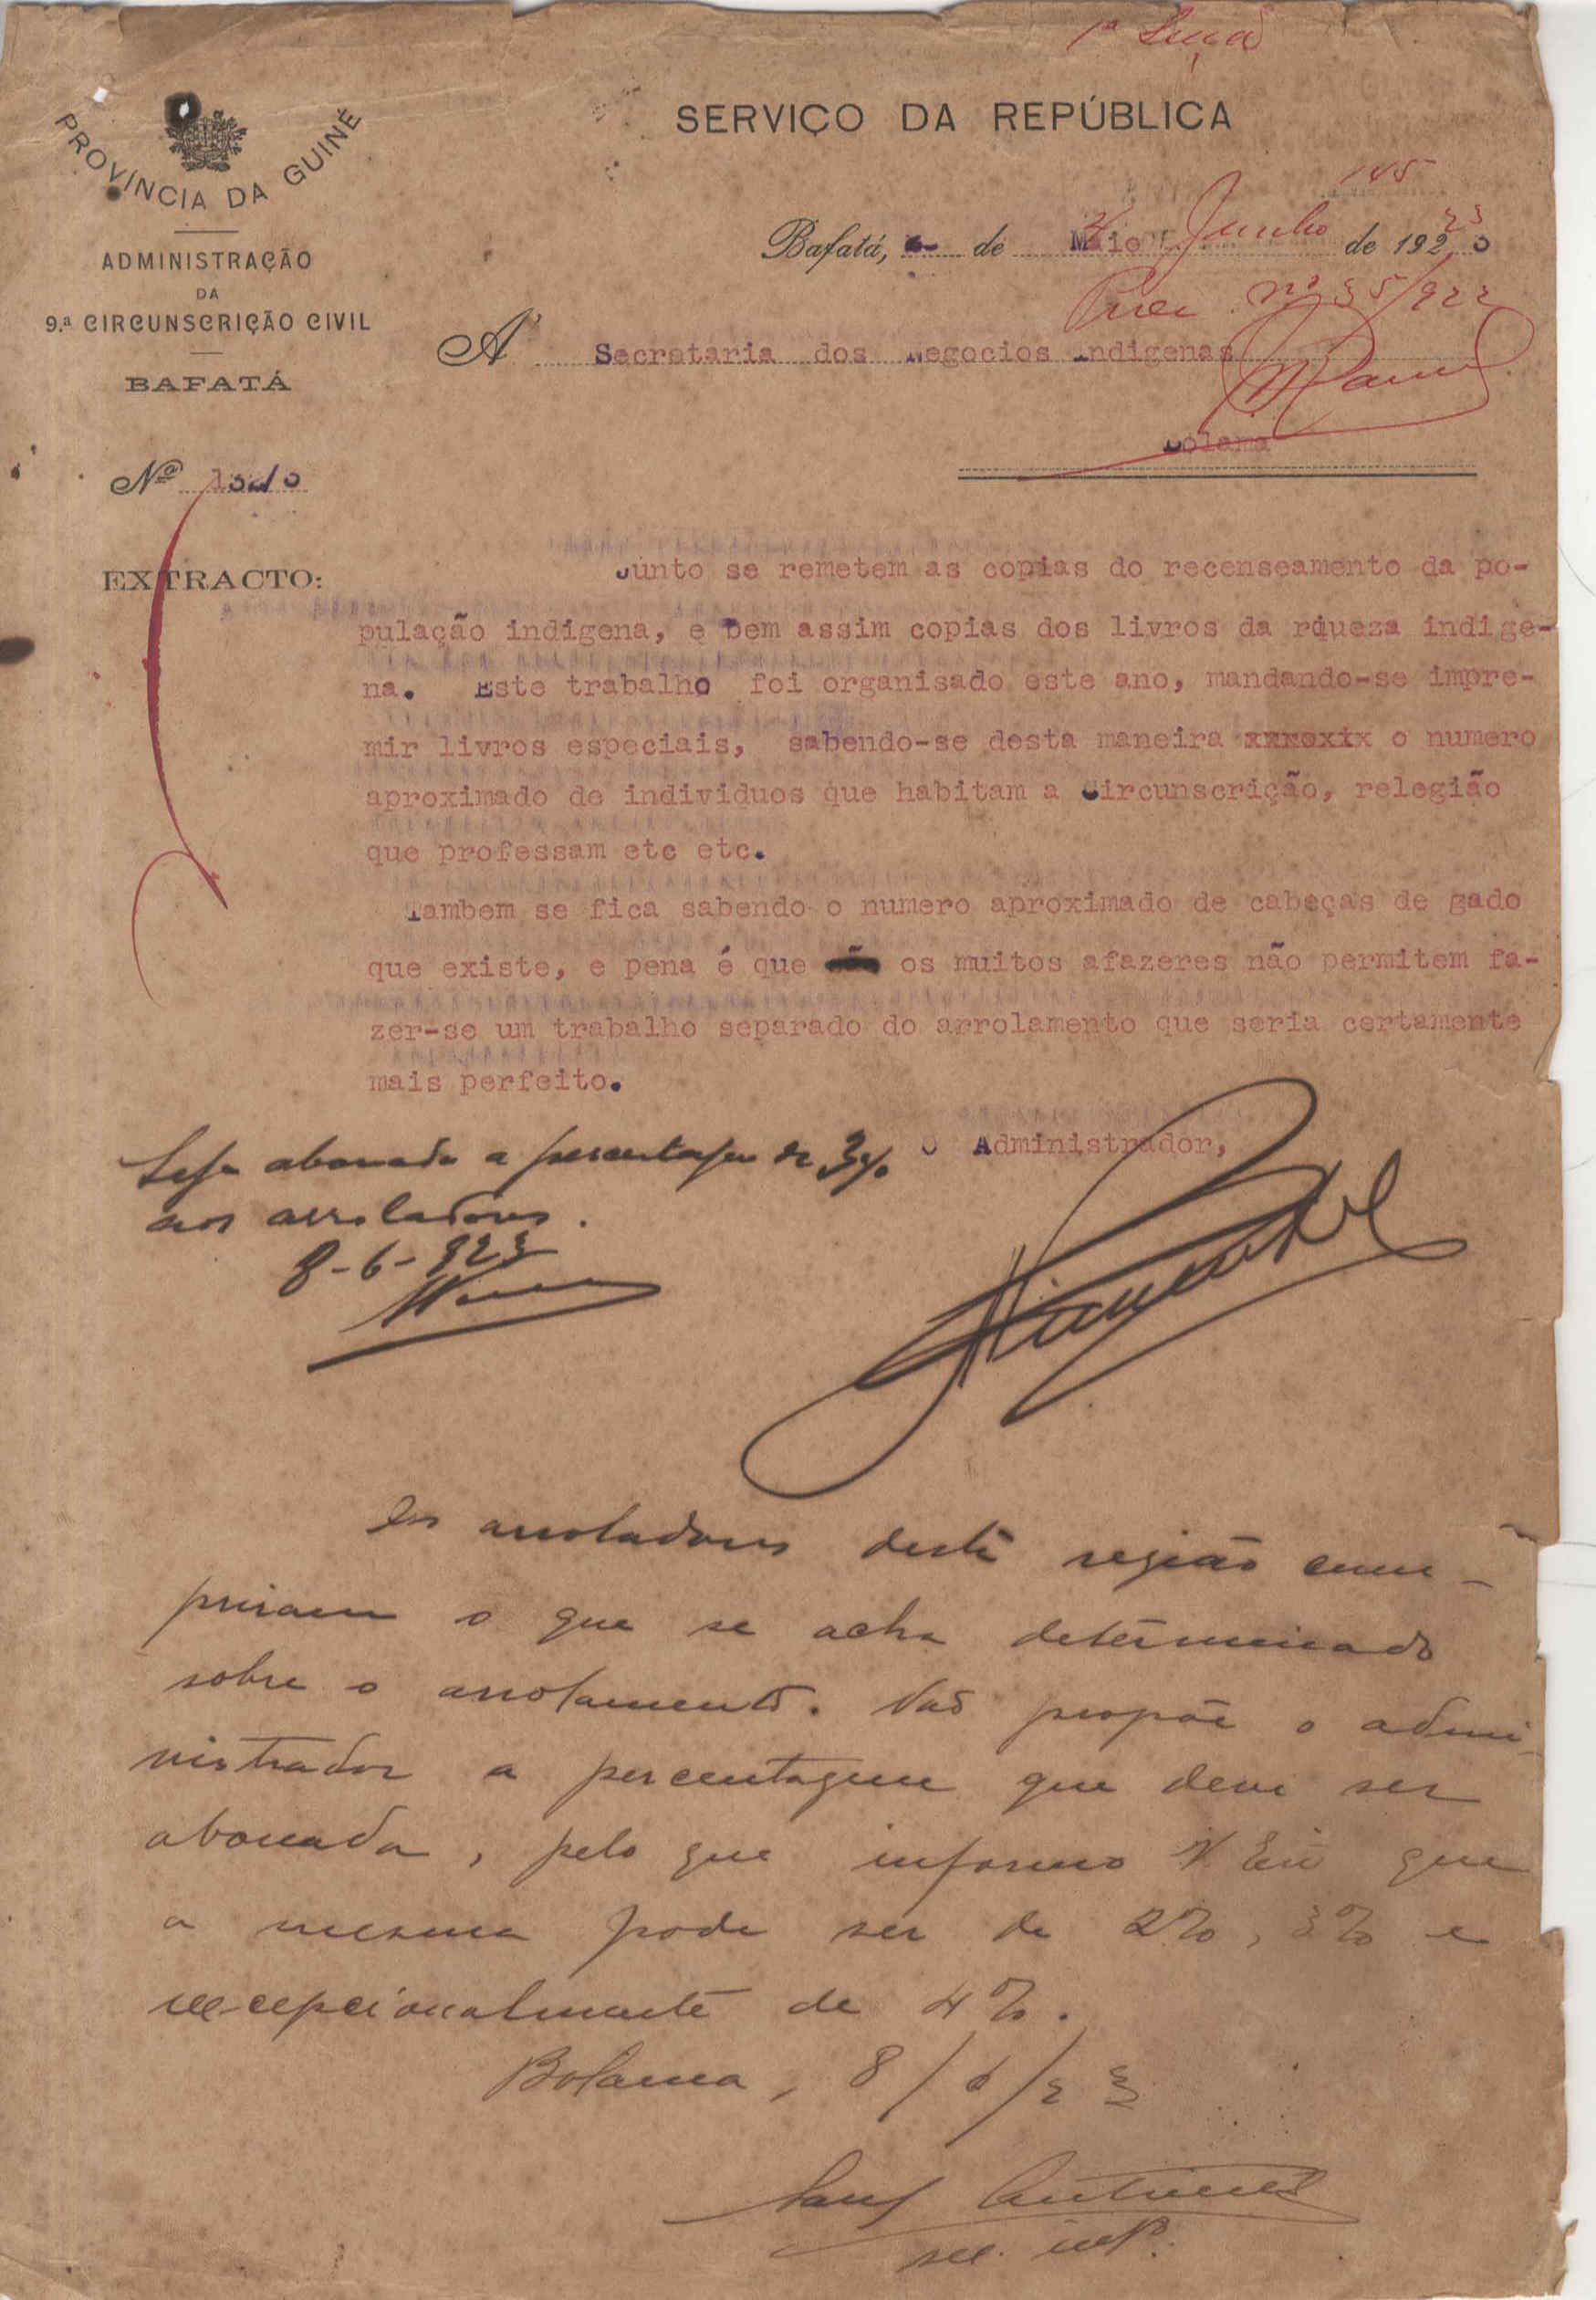 1ª Secção
PROVÍNCIA DA GUINÉ
ADMINISTRAÇÃO
DA
9.ª CIRCUNSCRIÇÃO CIVIL
BAFATÁ
SERVIÇO DA REPÚBLICA
145
Bafatá, de Maio Junho de 1923
Proc nº 35/922
Á Secretaria dos Negocios Indigenas
Bolama
Nº
EXTRACTO:
Junto se remetem as copias do recenseamento da po-
pulação indigena, e bem assim copias dos livros da rqueza indige-
na. Este trabalho foi organisado este ano, mandando-se impre-
mir livros especiais, sabendo-se desta maneira o numero
aproximado de individuos que habitam a Circunscrição, relegião
que professam etc etc.
Tambem se fica sabendo o numero aproximado de cabeças de gado
que existe, e pena é que os muitos afazeres não permitem fa-
zer-se um trabalho separado do arrolamento que seria certamente
mais perfeito.
O Administrador,
Seja abonada a percentagem de 3%
aos arroladores.
8-6-923
Os arroladores desta região cum-
priram o que se acha determinado
sobre o arrolamento. Não propõe o admi-
nistrador a percentagem que deve ser
abonada, pelo que informo V Exª que
a mesma pode ser de 2%, 3% e
excepcionalmente de 4%.
Bolama, 8/6/23